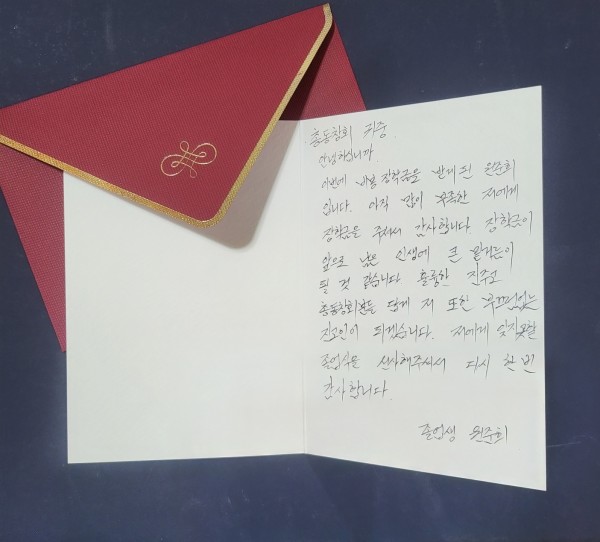 총동창회 귀중.
안녕하십니까.
이번에 비봉 장학금을 받게 된 원주희
입니다. 아직 많이 부족한 저에게
장학금을 주셔서 감사합니다. 장학금이
앞으로 남은 인생에 큰 밑거름이
될 것 같습니다. 훌륭한 진주고
총동창회분들 답게 저 또한 부끄럼없는
진고인이 되겠습니다. 저에게 잊지못할
졸업식을 선사해주셔서 다시 한 번
감사합니다.
졸업생 원주희